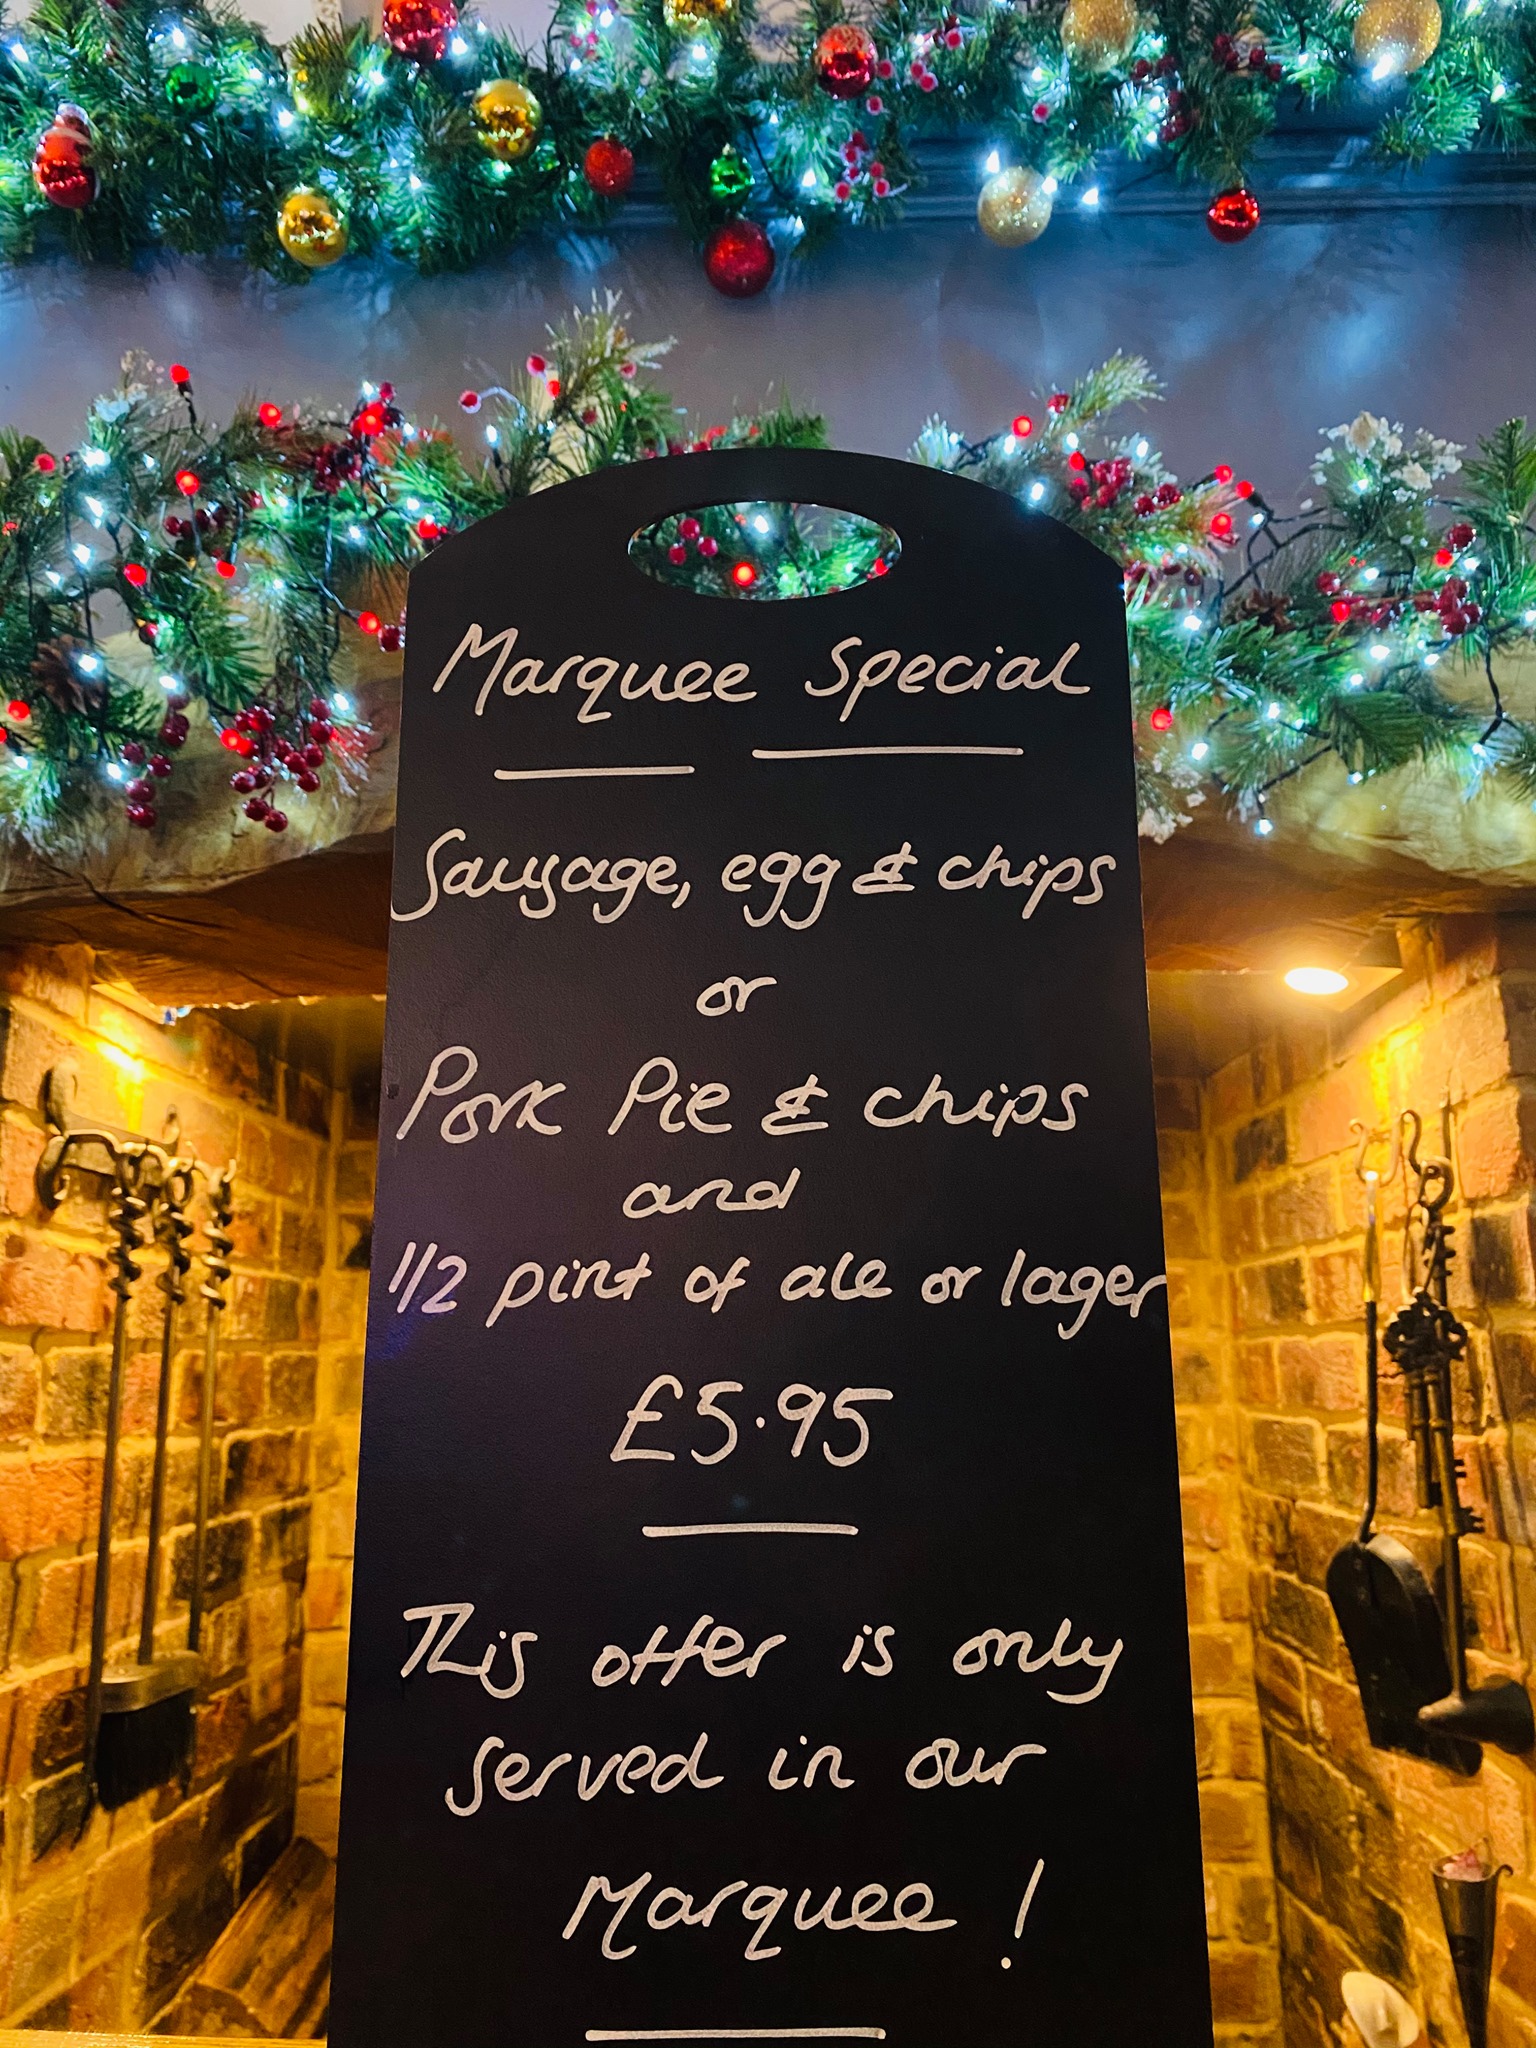 Marquee Special
Sausage, egg & chips
or
Pork Pie & chips
and
1/2 pint of ale or lager
£5.95
This offer is only
served in our
Marquee!